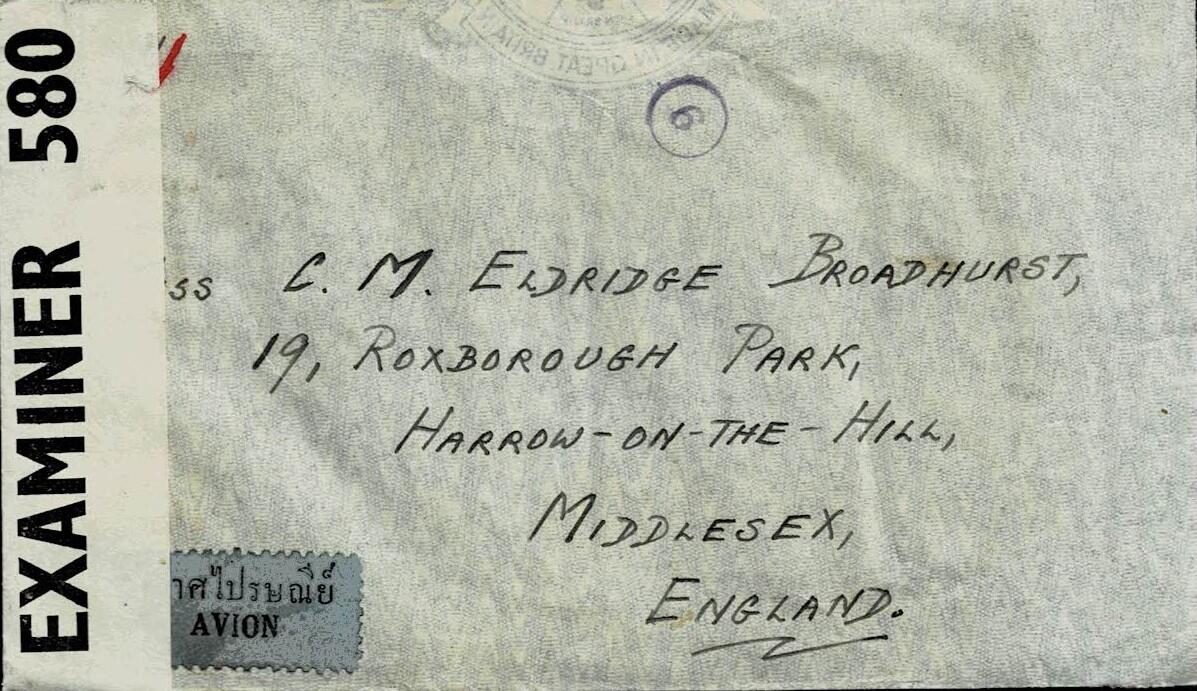 EXAMINER 580
MADE IN GREAT BRITAIN
6
ss C. M. ELDRIDGE BROADHURST,
19, ROXBOROUGH PARK,
HARROW-ON-THE-HILL,
MIDDLESEX,
ENGLAND.
าศไปรษณีย์
AVION